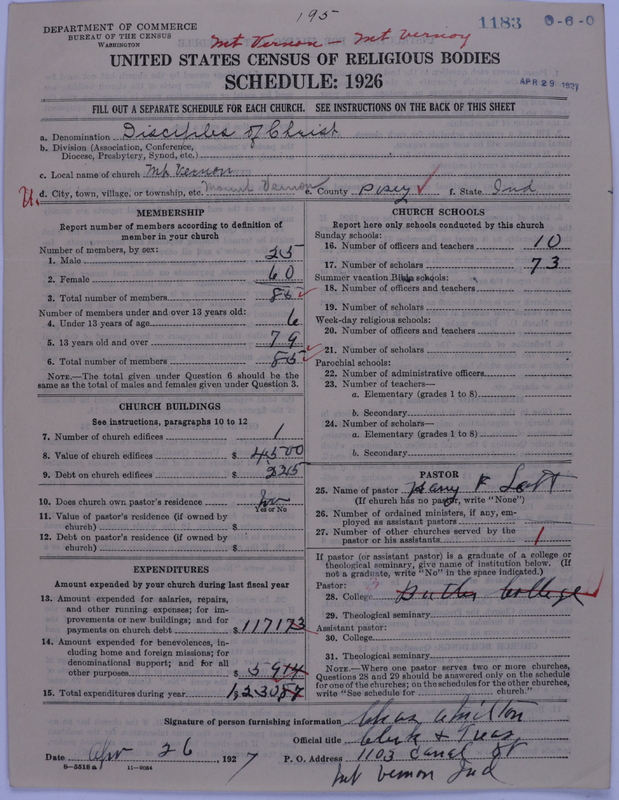 195
1183 0-6-0
DEPARTMENT OF COMMERCE
BUREAU OF THE CENSUS
WASHINGTON
Mt Vernon — Mt Vernon
UNITED STATES CENSUS OF RELIGIOUS BODIES
SCHEDULE: 1926
APR 29 1927
FILL OUT A SEPARATE SCHEDULE FOR EACH CHURCH. SEE INSTRUCTIONS ON THE BACK OF THIS SHEET
a. Denomination Disciples of Christ
b. Division (Association, Conference,
Diocese, Presbytery, Synod, etc.)
c. Local name of church Mt. Vernon
d. City, town, village, or township, etc. Mount Vernon e. County Posey f. State Ind
MEMBERSHIP
Report number of members according to definition of
member in your church
Number of members, by sex:
1. Male 25
2. Female 60
3. Total number of members 85
Number of members under and over 13 years old:
4. Under 13 years of age 6
5. 13 years old and over 79
6. Total number of members 85
NOTE.—The total given under Question 6 should be the
same as the total of males and females given under Question 3.
CHURCH BUILDINGS
See instructions, paragraphs 10 to 12
7. Number of church edifices 1
8. Value of church edifices $ 4500
9. Debt on church edifices $ 225
10. Does church own pastor's residence No
Yes or No
11. Value of pastor's residence (if owned by
church) $
12. Debt on pastor's residence (if owned by
church) $
EXPENDITURES
Amount expended by your church during last fiscal year
13. Amount expended for salaries, repairs,
and other running expenses; for im-
provements or new buildings; and for
payments on church debt $ 1171 73
14. Amount expended for benevolences, in-
cluding home and foreign missions; for
denominational support; and for all
other purposes $ 59 14
15. Total expenditures during year 1,230 87
CHURCH SCHOOLS
Report here only schools conducted by this church
Sunday schools:
16. Number of officers and teachers 10
17. Number of scholars 73
Summer vacation Bible schools:
18. Number of officers and teachers
19. Number of scholars
Week-day religious schools:
20. Number of officers and teachers
21. Number of scholars
Parochial schools:
22. Number of administrative officers
23. Number of teachers—
a. Elementary (grades 1 to 8)
b. Secondary
24. Number of scholars—
a. Elementary (grades 1 to 8)
b. Secondary
PASTOR
25. Name of pastor Harry F
(If church has no pastor, write "None")
26. Number of ordained ministers, if any, em-
ployed as assistant pastors
27. Number of other churches served by the
pastor or his assistants 1
If pastor (or assistant pastor) is a graduate of a college or
theological seminary, give name of institution below. (If
not a graduate, write "No" in the space indicated.)
Pastor:
28. College Butler College
29. Theological seminary
Assistant pastor:
30. College
31. Theological seminary
NOTE.—Where one pastor serves two or more churches,
Questions 28 and 29 should be answered only on the schedule
for one of the churches; on the schedules for the other churches,
write "See schedule for church."
Signature of person furnishing information Chas
Official title Clerk & Treas
Date Apr 26, 1927 P. O. Address 1103 Canal St
8—5518 a 11—9084
Mt Vernon Ind